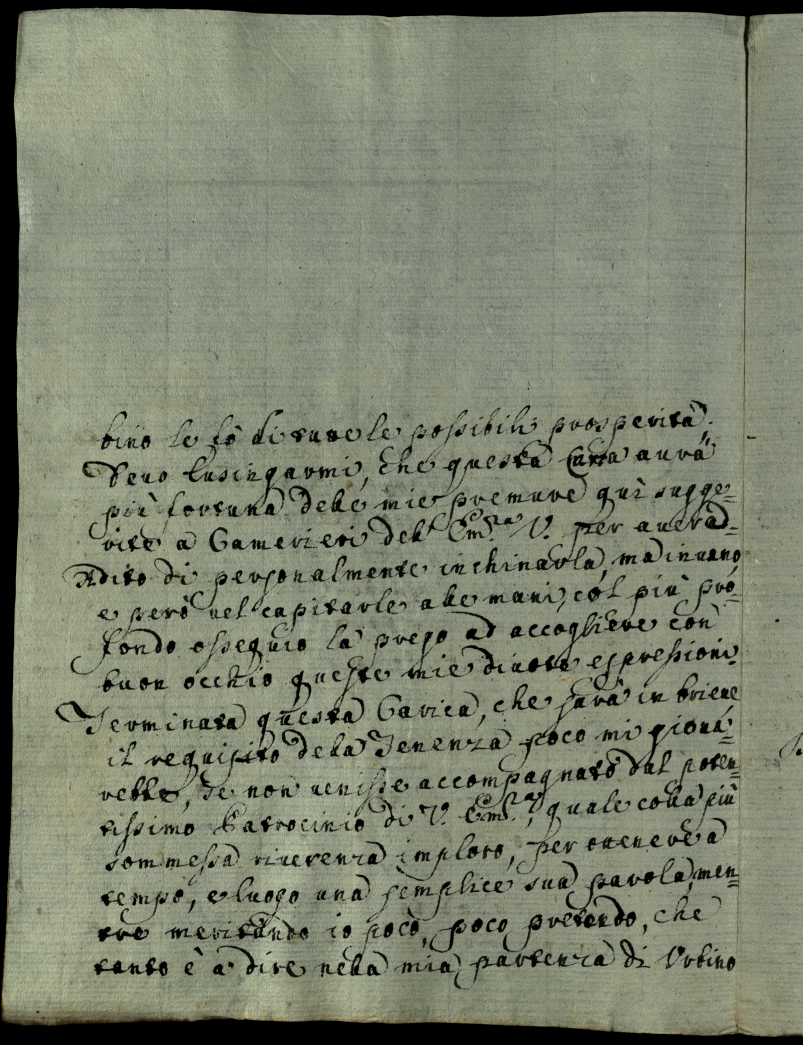 bino le fò di tute le possibili prosperità,
Devo lusingarmi, che questa Carta aurà
più fortuna dele mie premure quì sugge=
rite a Camerieri del' Em.ᶻᵃ V. per auer ad=
Adito di personalmente inchinarla, ma inuano,
e però nel capitarle ale mani, col più pro=
fondo ossequio la prego ad accogliere con
buon occhio queste mie diuote espressioni.
Terminata questa Carica, che sarà in brieue
il requisito dela Tenenza poco mi gioua=
rebbe, se non uenisse accompagnato dal poten=
tissimo Patrocinio di V. Em.ᶻᵃ, quale cola più
sommessa riuerenza imploro, per otenere a
tempo, e luogo una semplice sua parola, men=
tre meritando io poco, poco pretendo, che
tanto è a dire nela mia partenza di Urbino